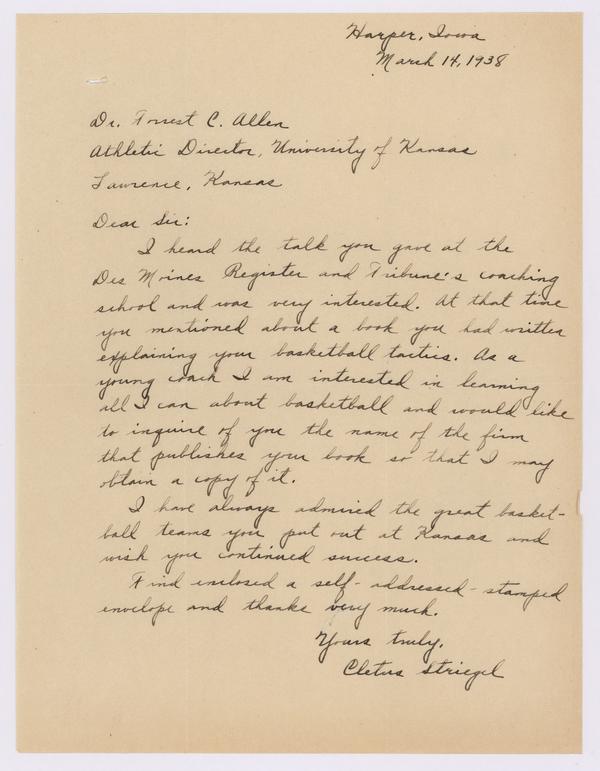 Harper, Iowa
March 14, 1938
Dr. Forrest C. Allen
Athletic Director, University of Kansas
Lawrence, Kansas
Dear Sir:
I heard the talk you gave at the
Des Moines Register and Tribune's coaching
school and was very interested. At that time
you mentioned about a book you had written
explaining your basketball tactics. As a
young coach I am interested in learning
all I can about basketball and would like
to inquire of you the name of the firm
that publishes your book so that I may
obtain a copy of it.
I have always admired the great basket-
ball teams you put out at Kansas and
wish you continued success.
Find enclosed a self-addressed-stamped
envelope and thanks very much.
Yours truly,
Cletus Striegel